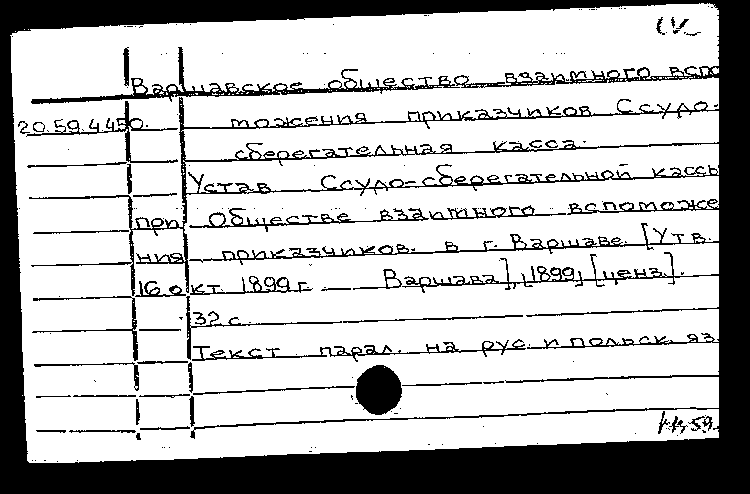 Варшавское общество взаимного вспо
20.59.4450. можения приказчиков Ссудо-
сберегательная касса.
Устав Ссудо-сберегательной кассы
при Обществе взаимного вспоможе
ния приказчиков. в г. Варшаве. [Утв.
16 окт. 1899 г. Варшава], [1899, [ценз].
32 с.
Текст парал. на рус. и польск. яз.